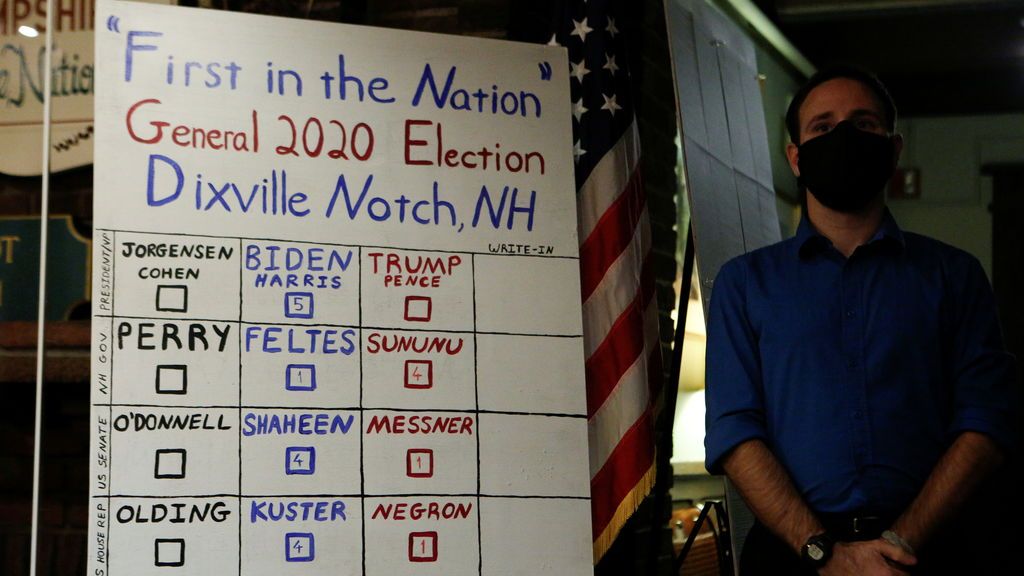 "First in the Nation"
General 2020 Election
Dixville Notch, NH
WRITE-IN
PRESIDENT/VP
JORGENSEN
COHEN
BIDEN
HARRIS
5
TRUMP
PENCE
NH GOV.
PERRY
FELTES
1
SUNUNU
4
US SENATE
O'DONNELL
SHAHEEN
4
MESSNER
1
S HOUSE REP
OLDING
KUSTER
4
NEGRON
1